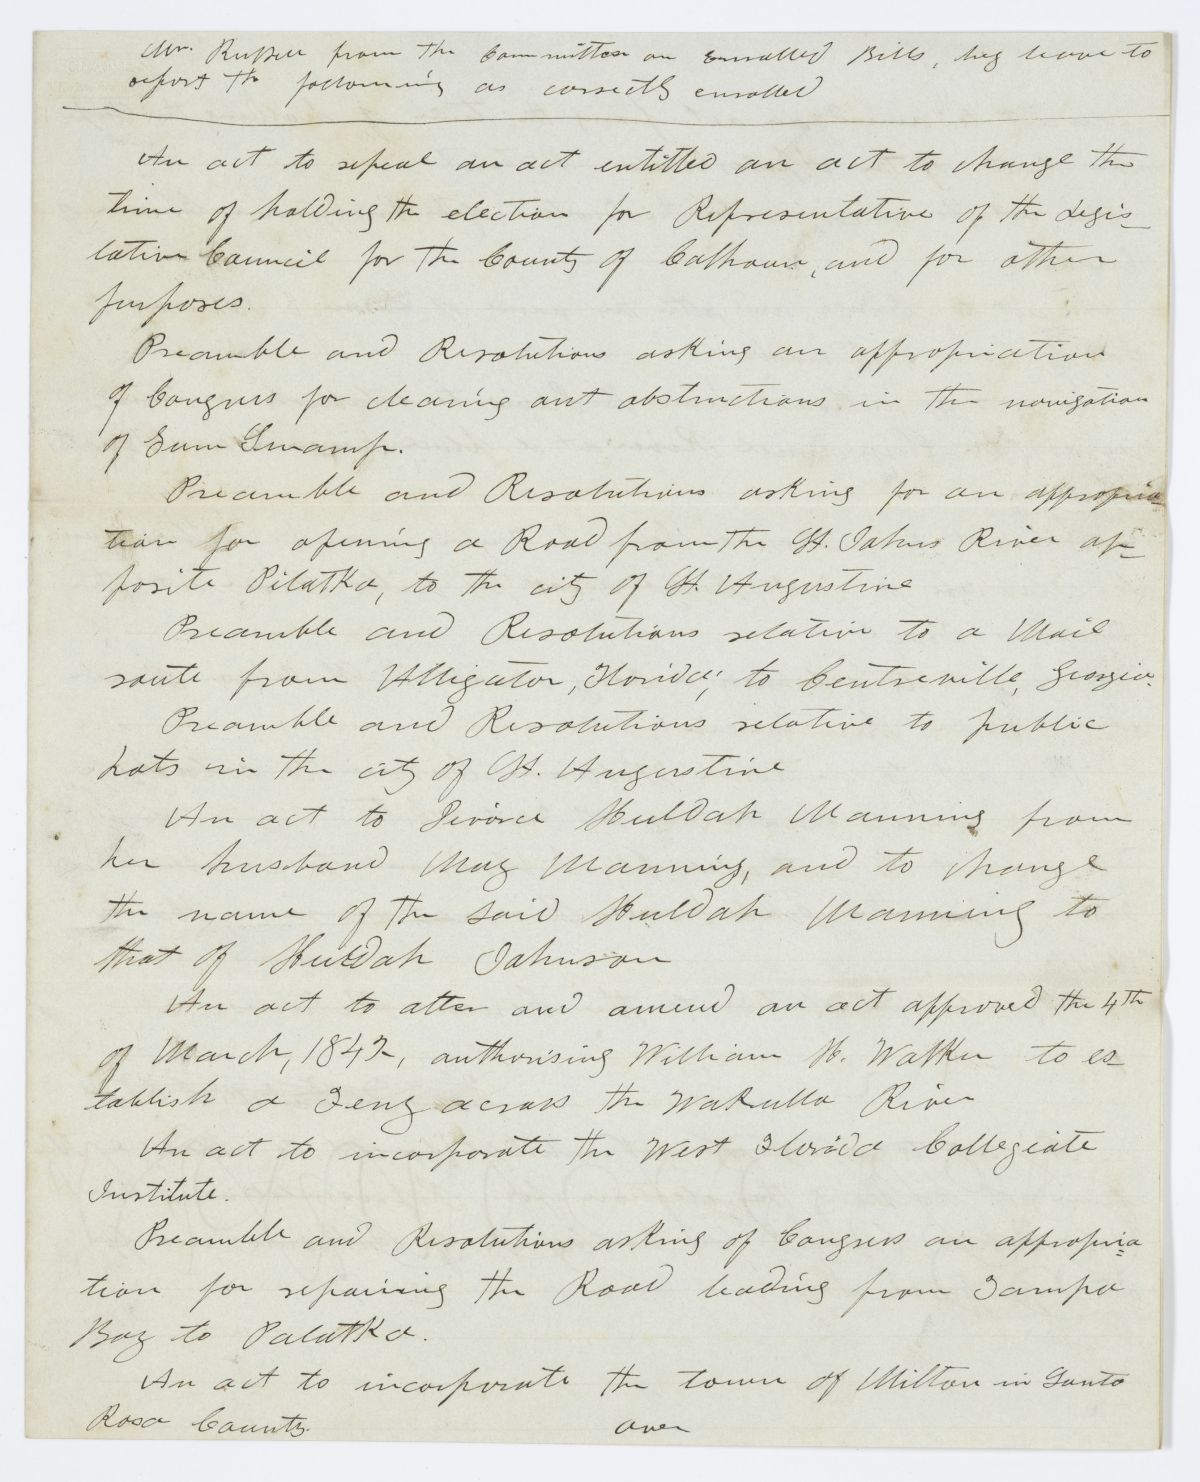 Mr. Russell from the Committee on Enrolled Bills, beg leave to
report the following as correctly enrolled
An act to repeal an act entitled an act to change the
time of holding the election for Representative of the Legis-
lative Council for the County of Calhoun, and for other
purposes.
Preamble and Resolutions asking an appropriation
of Congress for clearing out obstructions in the navigation
of Gum Swamp.
Preamble and Resolutions asking for an appropria-
tion for opening a Road from the St. Johns River op-
posite Pilatka, to the city of St. Augustine
Preamble and Resolutions relative to a Mail
route from Alligator, Florida, to Centreville, Georgia.
Preamble and Resolutions relative to public
Lots in the city of St. Augustine
An act to Divorce Huldah Manning from
her husband May Manning, and to change
the name of the said Huldah Manning to
that of Huldah Johnson
An act to alter and amend an act approved the 4th
of March, 1842, authorising William H. Walker to es-
tablish a Ferry across the Wakulla River
An act to incorporate the West Florida Collegiate
Institute.
Preamble and Resolutions asking of Congress an appropria=
tion for repairing the Road leading from Tampa
Bay to Palatka.
An act to incorporate the town of Milton in Santa
Rosa County.
over